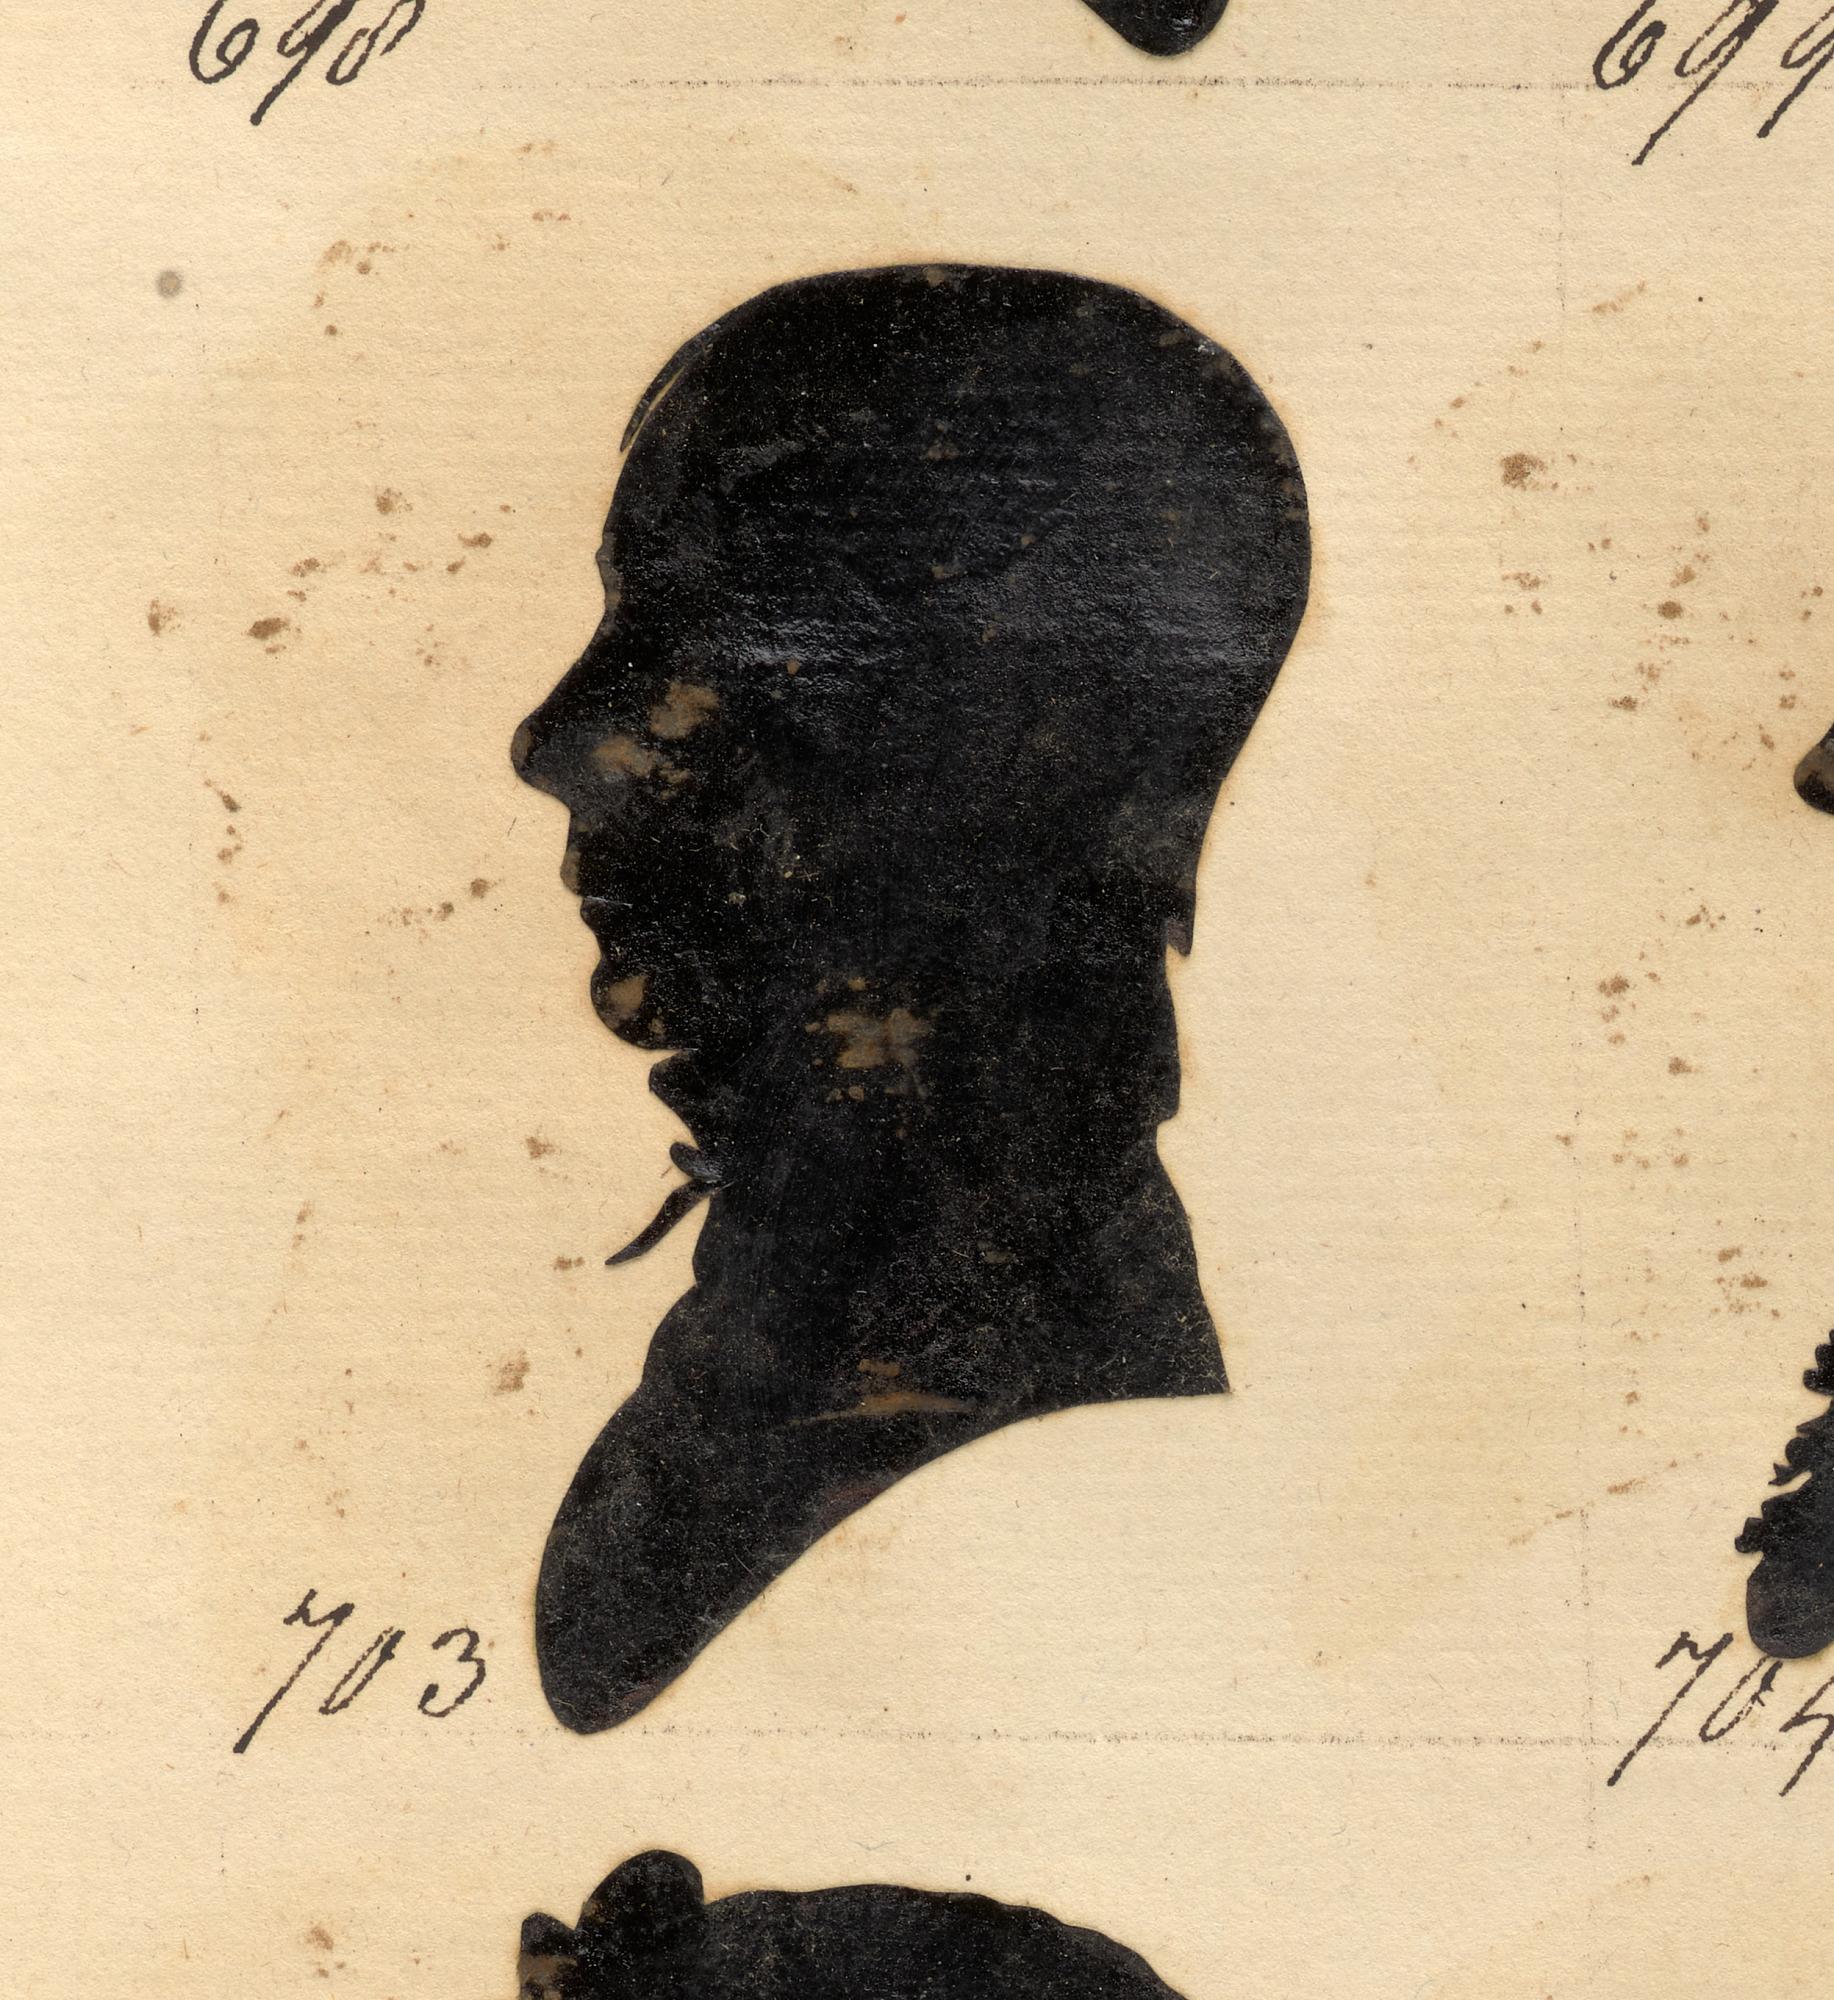 698 699
703 704